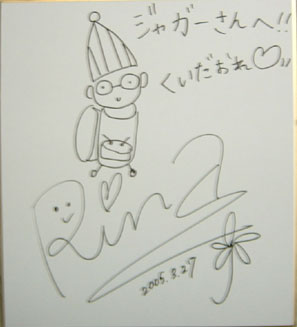 ジャガーさんへ!!
くいだおれ♡〃
Rina
2005.8.27